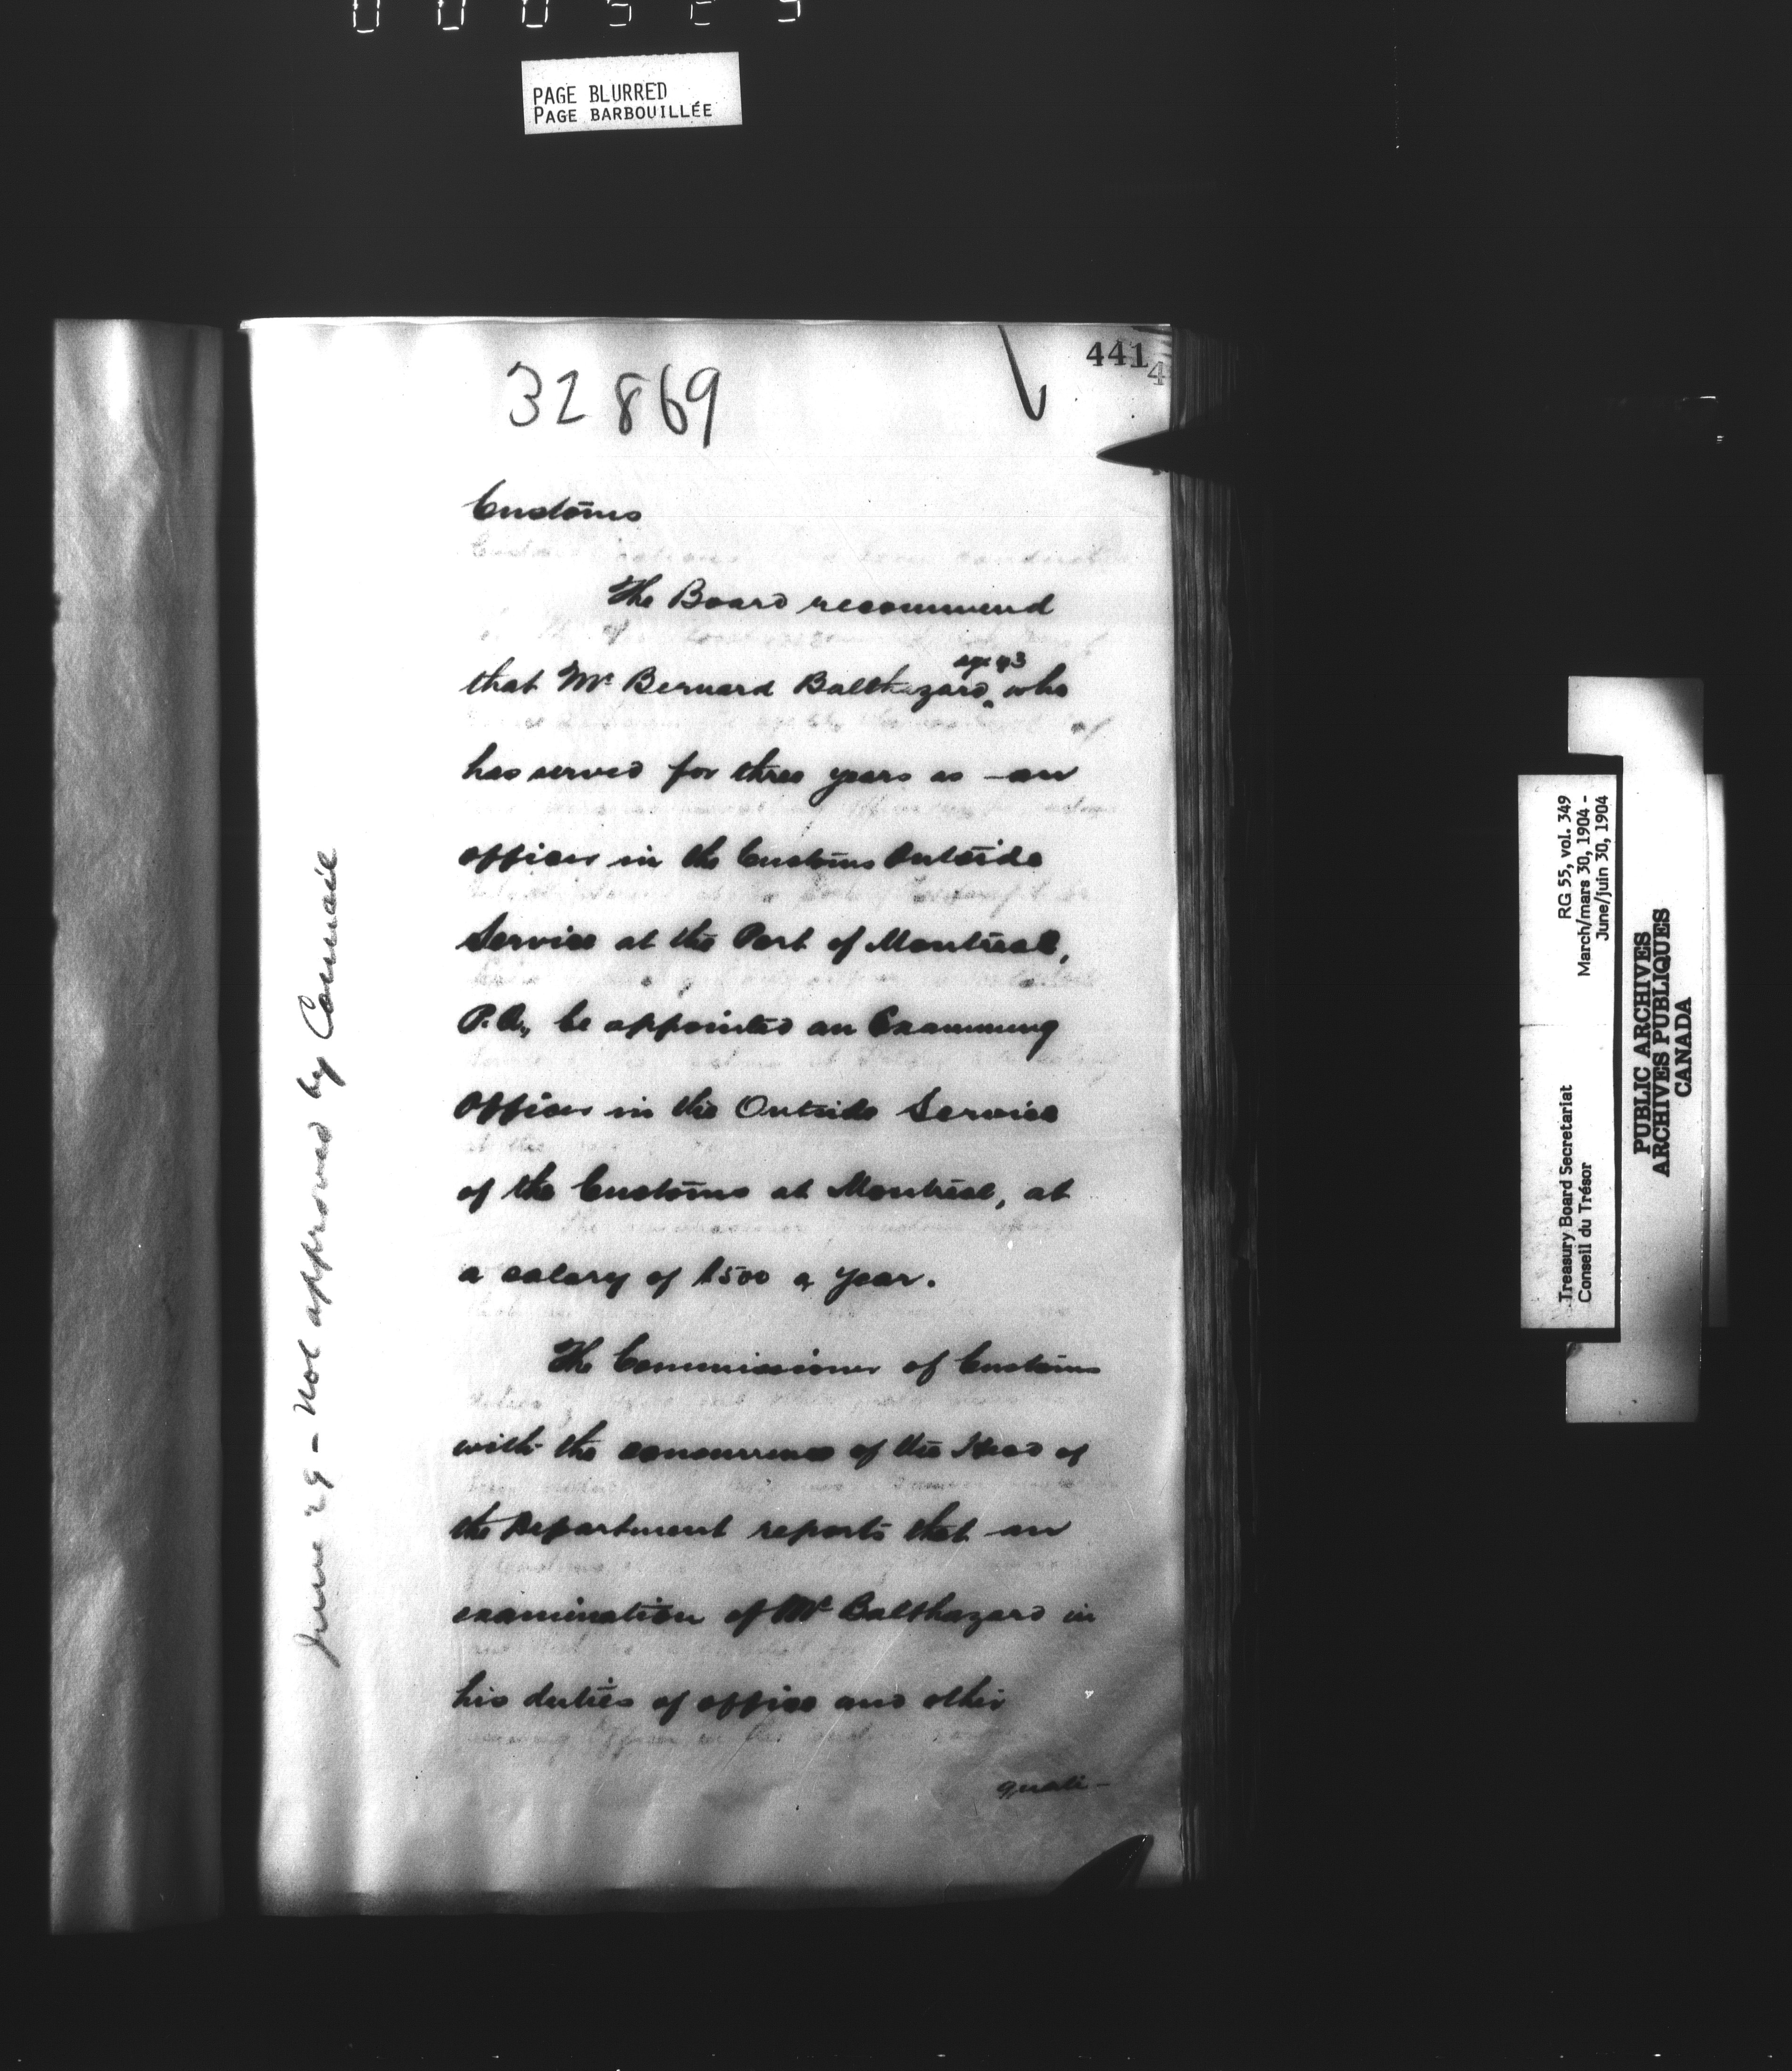 PAGE BLURRED
PAGE BARBOUILLÉE
441
32869
Customs
The Board recommend
age 43
that Mr Bernard Balthazard, who
has served for three years as an
officer in the Customs Outside
Service at the Port of Montreal,
P.Q., be appointed an Examining
Officer in the Outside Service
of the Customs at Montreal, at
a salary of $500 a year.
The Commissioner of Customs
with the concurrence of the Head of
the Department reports that an
examination of Mr Balthazard in
his duties of office and other
quali-
June 29 - Not approved by Council
Treasury Board Secretariat RG 55, vol. 349
Conseil du Trésor March/mars 30, 1904 -
June/juin 30, 1904
PUBLIC ARCHIVES
ARCHIVES PUBLIQUES
CANADA